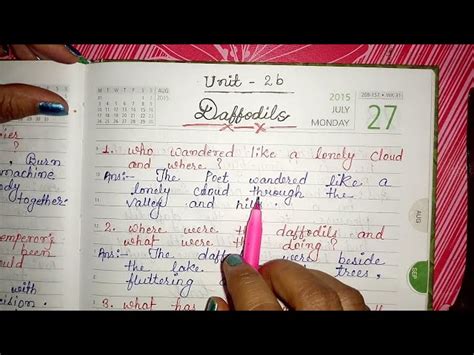 Unit - 2b
Daffodils
2015
JULY
MONDAY
27
208-157 • WK 31
AUG
2015
1. who wandered like a lonely cloud
and where ?
Ans:- The Poet wandered like a
lonely cloud through the
valley and
2. where were daffodils and
what were doing ?
Ans:- The were beside
the lake trees,
fluttering
3. what has
?
Burn
machine
together.
emperor's
been
could
with
AUG
SEP